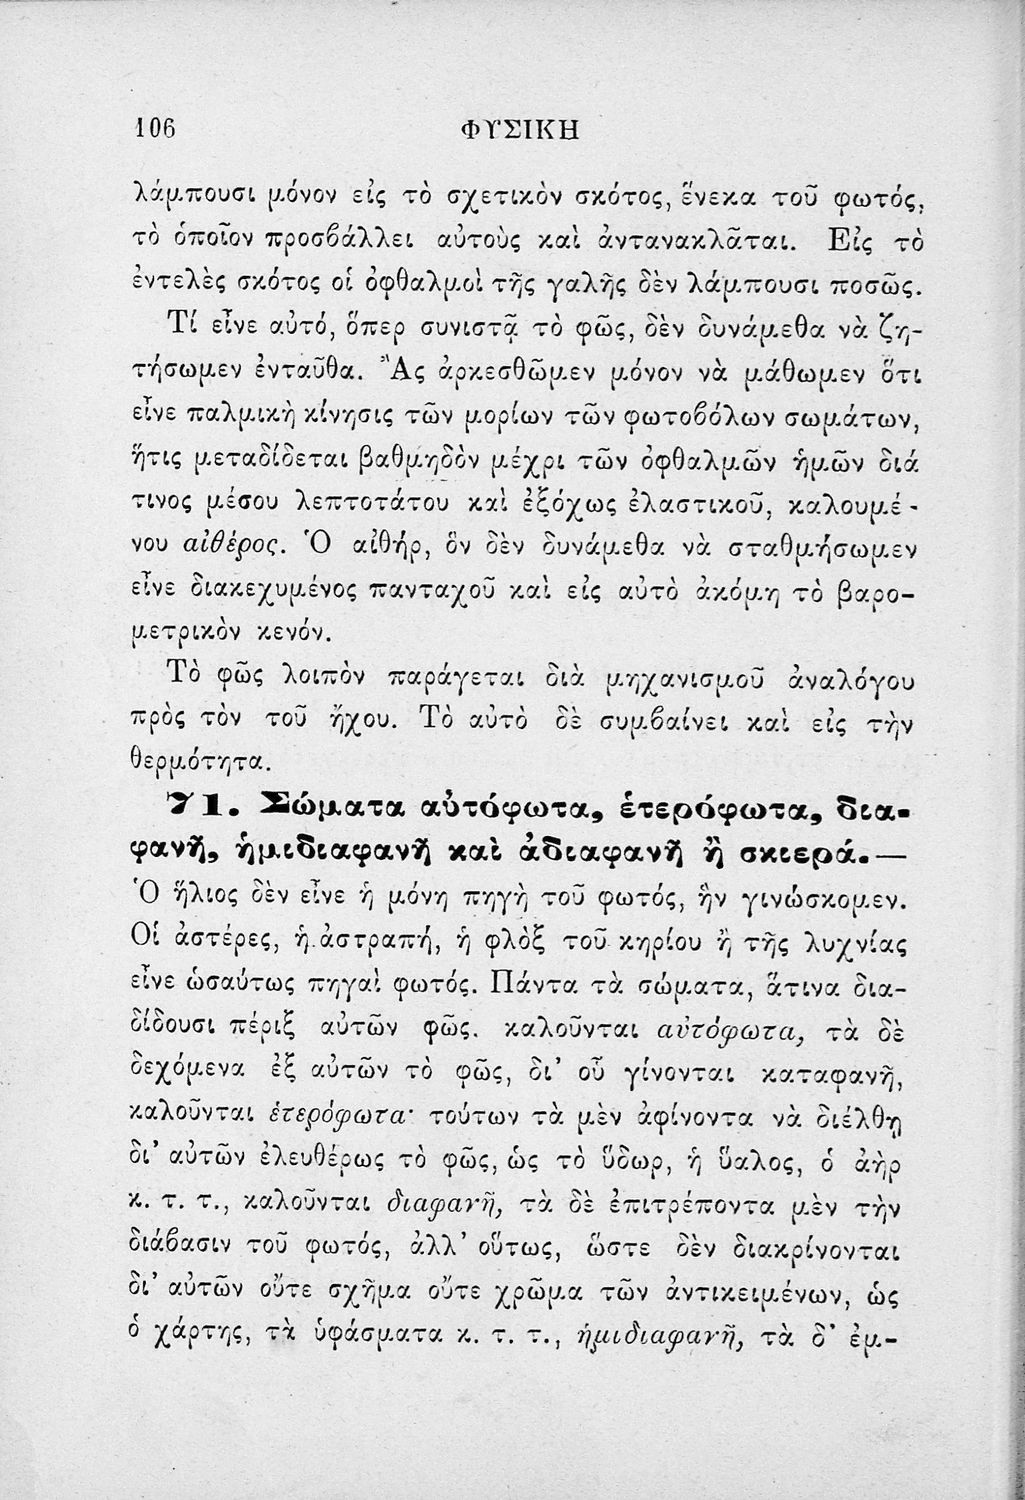 106 ΦΥΣΙΚΗ
λάμπουσι μόνον εἰς τὸ σχετικὸν σκότος, ἕνεκα τοῦ φωτός,
τὸ ὁποῖον προσβάλλει αὐτοὺς καὶ ἀντανακλᾶται. Εἰς τὸ
ἐντελὲς σκότος οἱ ὀφθαλμοὶ τῆς γαλῆς δὲν λάμπουσι ποσῶς.
Τί εἶνε αὐτό, ὅπερ συνιστᾷ τὸ φῶς, δὲν δυνάμεθα νὰ ζη-
τήσωμεν ἐνταῦθα. Ἂς ἀρκεσθῶμεν μόνον νὰ μάθωμεν ὅτι
εἶνε παλμικὴ κίνησις τῶν μορίων τῶν φωτοβόλων σωμάτων,
ἥτις μεταδίδεται βαθμηδὸν μέχρι τῶν ὀφθαλμῶν ἡμῶν διά
τινος μέσου λεπτοτάτου καὶ ἐξόχως ἐλαστικοῦ, καλουμέ-
νου αἰθέρος. Ὁ αἰθήρ, ὃν δὲν δυνάμεθα νὰ σταθμήσωμεν
εἶνε διακεχυμένος πανταχοῦ καὶ εἰς αὐτὸ ἀκόμη τὸ βαρο-
μετρικὸν κενόν.
Τὸ φῶς λοιπὸν παράγεται διὰ μηχανισμοῦ ἀναλόγου
πρὸς τὸν τοῦ ἤχου. Τὸ αὐτὸ δὲ συμβαίνει καὶ εἰς τὴν
θερμότητα.
71. Σώματα αὐτόφωτα, ἑτερόφωτα, δια-
φανῆ, ἡμιδιαφανῆ καὶ ἀδιαφανῆ ἢ σκιερά.—
Ὁ ἥλιος δὲν εἶνε ἡ μόνη πηγὴ τοῦ φωτός, ἣν γινώσκομεν.
Οἱ ἀστέρες, ἡ ἀστραπή, ἡ φλὸξ τοῦ κηρίου ἢ τῆς λυχνίας
εἶνε ὡσαύτως πηγαὶ φωτός. Πάντα τὰ σώματα, ἅτινα δια-
δίδουσι πέριξ αὐτῶν φῶς. καλοῦνται αὐτόφωτα, τὰ δὲ
δεχόμενα ἐξ αὐτῶν τὸ φῶς, δι' οὗ γίνονται καταφανῆ,
καλοῦνται ἑτερόφωτα· τούτων τὰ μὲν ἀφίνοντα νὰ διέλθῃ
δι' αὐτῶν ἐλευθέρως τὸ φῶς, ὡς τὸ ὕδωρ, ἡ ὕαλος, ὁ ἀὴρ
κ. τ. τ., καλοῦνται διαφανῆ, τὰ δὲ ἐπιτρέποντα μὲν τὴν
διάβασιν τοῦ φωτός, ἀλλ' οὕτως, ὥστε δὲν διακρίνονται
δι' αὐτῶν οὔτε σχῆμα οὔτε χρῶμα τῶν ἀντικειμένων, ὡς
ὁ χάρτης, τὰ ὑφάσματα κ. τ. τ., ἡμιδιαφανῆ, τὰ δ' ἐμ-